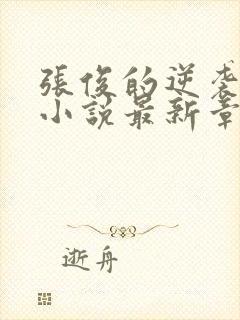 張俊的逆袭
小説最新章
逝舟